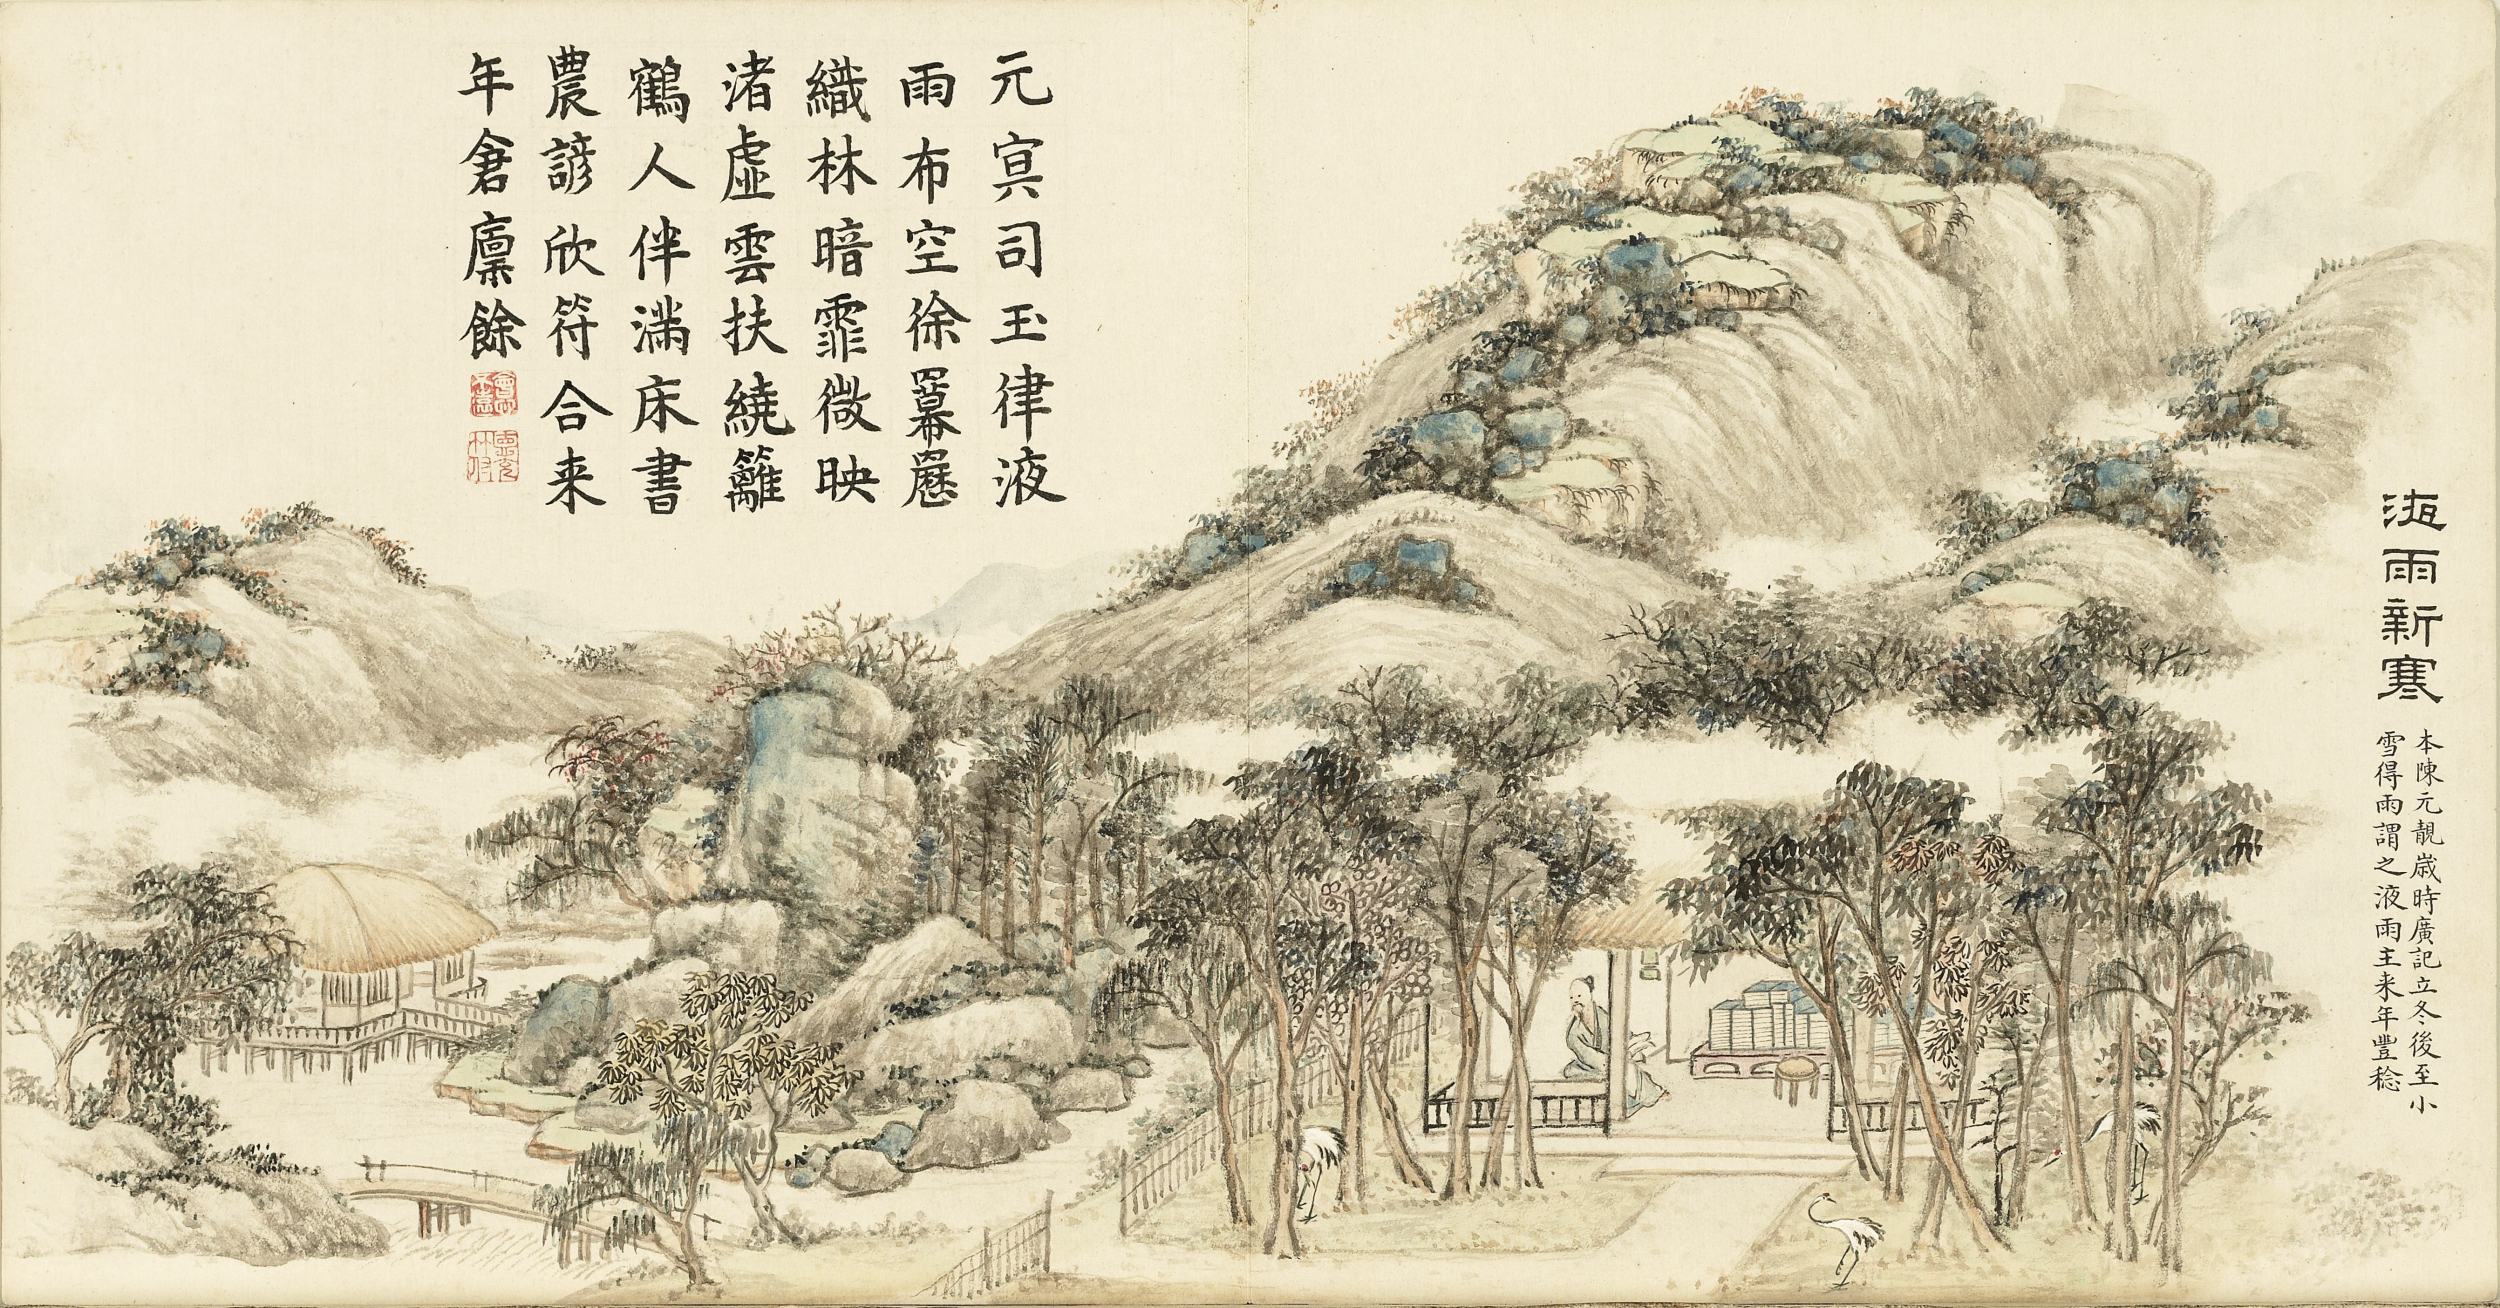 液雨新寒
本陳元靚歲時廣記立冬後至小
雪得雨謂之液雨主来年豐稔
元冥司玉律液
雨布空徐羃䍥
織林暗霏微映
渚虛雲扶繞籬
鶴人伴滿床書
農諺欣符合来
年倉廩餘
會心不遠
德充符